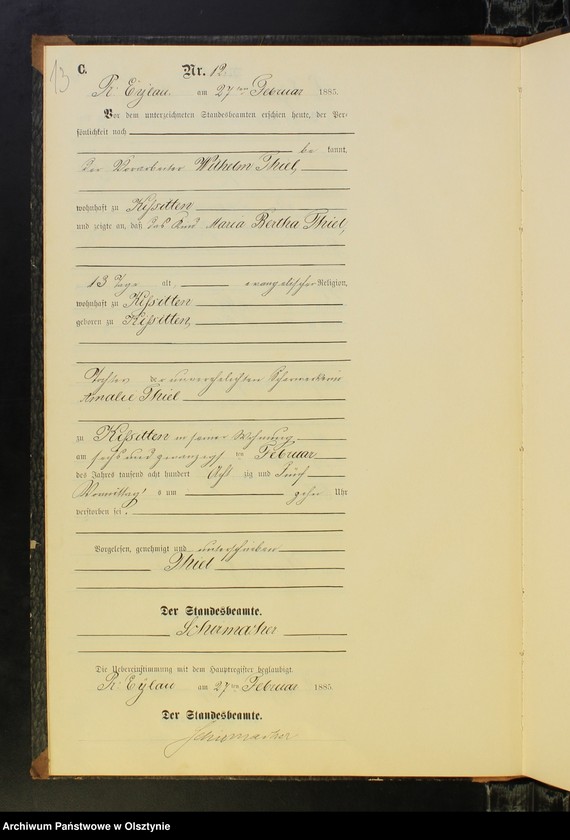 13
C.
Nr. 12.
Pr. Eylau am 27ten Februar 1885.
Vor dem unterzeichneten Standesbeamten erschien heute, der Per-
sönlichkeit nach
be kannt,
der Vorarbeiter Wilhelm Thiel,
wohnhaft zu Kissitten
und zeigte an, daß das Kind Maria Bertha Thiel,
13 Tage alt, evangelischer Religion,
wohnhaft zu Kissitten
geboren zu Kissitten,
Tochter der unverehelichten
Amalie Thiel
zu Kissitten in seiner Wohnung
am sechs und zwanzigsten Februar
des Jahres tausend acht hundert acht zig und fünf
Vormittags um zehn Uhr
verstorben sei.
Vorgelesen, genehmigt und unterschrieben
Thiel
Der Standesbeamte.
Schumacher
Die Uebereinstimmung mit dem Hauptregister beglaubigt.
Pr. Eylau am 27ten Februar 1885.
Der Standesbeamte.
Schumacher
Archiwum Państwowe w Olsztynie